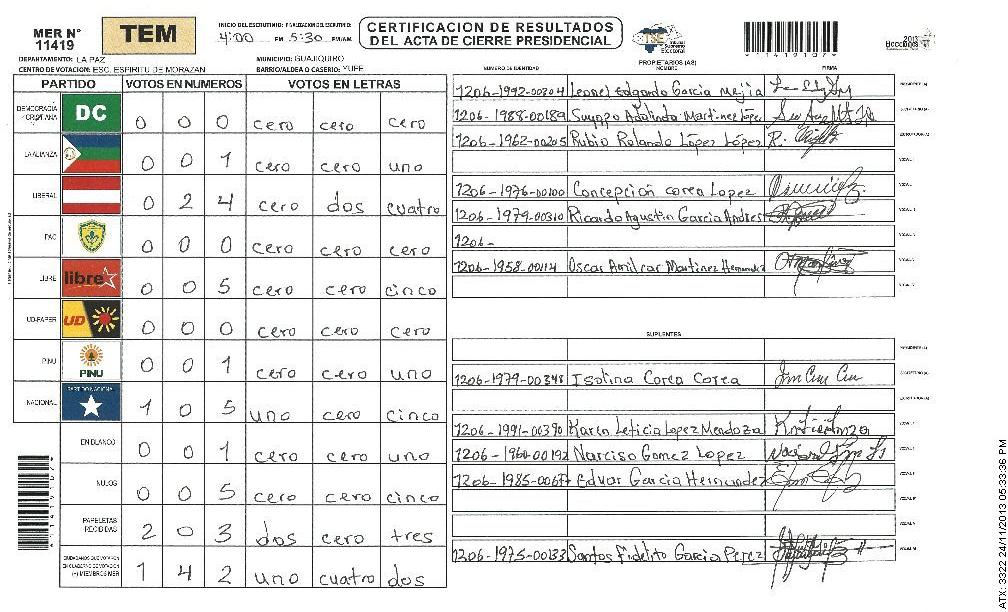 MER N° 11419
TEM
INICIO DEL ESCRUTINIO: FINALIZACION DEL ESCRUTINIO:
4:00 PM 5:30 PM/AM
CERTIFICACION DE RESULTADOS
DEL ACTA DE CIERRE PRESIDENCIAL
TSE Tribunal Supremo Electoral
2013
DEPARTAMENTO: LA PAZ
MUNICIPIO: GUAJIQUIRO
CENTRO DE VOTACION: ESC. ESPIRITU DE MORAZAN
BARRIO/ALDEA O CASERIO: YUFE
PARTIDO VOTOS EN NUMEROS VOTOS EN LETRAS
DEMOCRACIA CRISTIANA DC 0 0 0 cero cero cero
LA ALIANZA 0 0 1 cero cero uno
LIBERAL 0 2 4 cero dos cuatro
PAC 0 0 0 cero cero cero
LIBRE libre 0 0 5 cero cero cinco
UD-FAPER UD 0 0 0 cero cero cero
PINU PINU 0 0 1 cero cero uno
NACIONAL PARTIDO NACIONAL 1 0 5 uno cero cinco
EN BLANCO 0 0 1 cero cero uno
NULOS 0 0 5 cero cero cinco
PAPELETAS RECIBIDAS 2 0 3 dos cero tres
CIUDADANOS QUE VOTARON EN CUADERNO DE VOTACION (+) MIEMBROS MER 1 4 2 uno cuatro dos
PROPIETARIOS (AS)
NUMERO DE IDENTIDAD NOMBRE FIRMA
1206-1992-00304 Leonel Edgardo Garcia Mejia
1206-1988-00189 Adelinda Martinez López
1206-1962-00205 Rubio Rolando López López
1206-1976-00100 Concepción corea Lopez
1206-1979-00310 Ricardo Agustin Garcia Andres
1206-
1206-1958-00114 Oscar Amilcar Martinez Hernandez
SUPLENTES
1206-1979-00348 Isolina Corea Corea
1206-1991-00390 Karen Leticia Lopez Mendoza
1206-1960-00192 Narciso Gomez Lopez
1206-1985-00677 Eduar Garcia Hernandez
1206-1975-00133 Santos Fidelito Garcia Perez
ATX: 3322 24/11/2013 05:33:36 PM